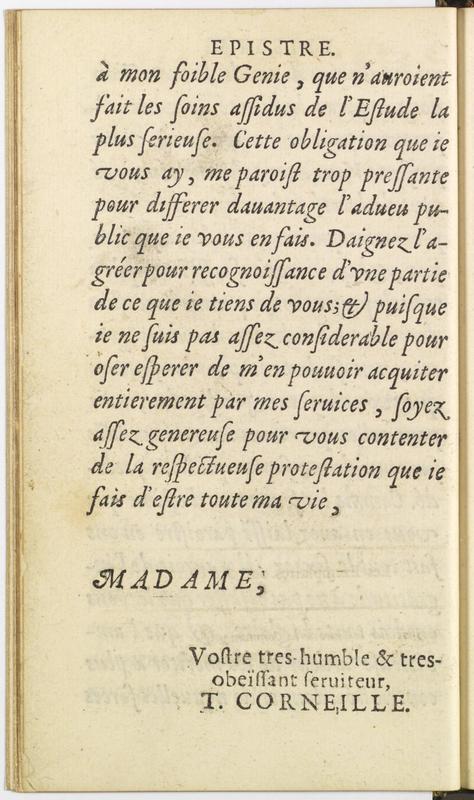 EPISTRE.
à mon foible Genie, que n'auroient
fait les ſoins aſſidus de l'Eſtude la
plus ſerieuſe. Cette obligation que ie
vous ay, me paroiſt trop preſſante
pour differer dauantage l'adueu pu-
blic que ie vous en fais. Daignez l'a-
gréer pour recognoiſſance d'vne partie
de ce que ie tiens de vous; & puiſque
ie ne ſuis pas aſſez conſiderable pour
oſer eſperer de m'en pouuoir acquiter
entierement par mes ſeruices, ſoyez
aſſez genereuſe pour vous contenter
de la reſpectueuſe proteſtation que ie
fais d'eſtre toute ma vie,
MADAME,
Voſtre tres-humble & tres-
obeïſſant ſeruiteur,
T. CORNEILLE.